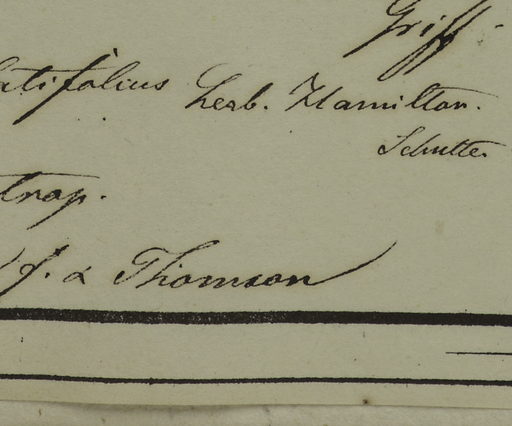 Griff.
latifolius herb. Hamilton.
Schutte.
trap.
f. & Thomson